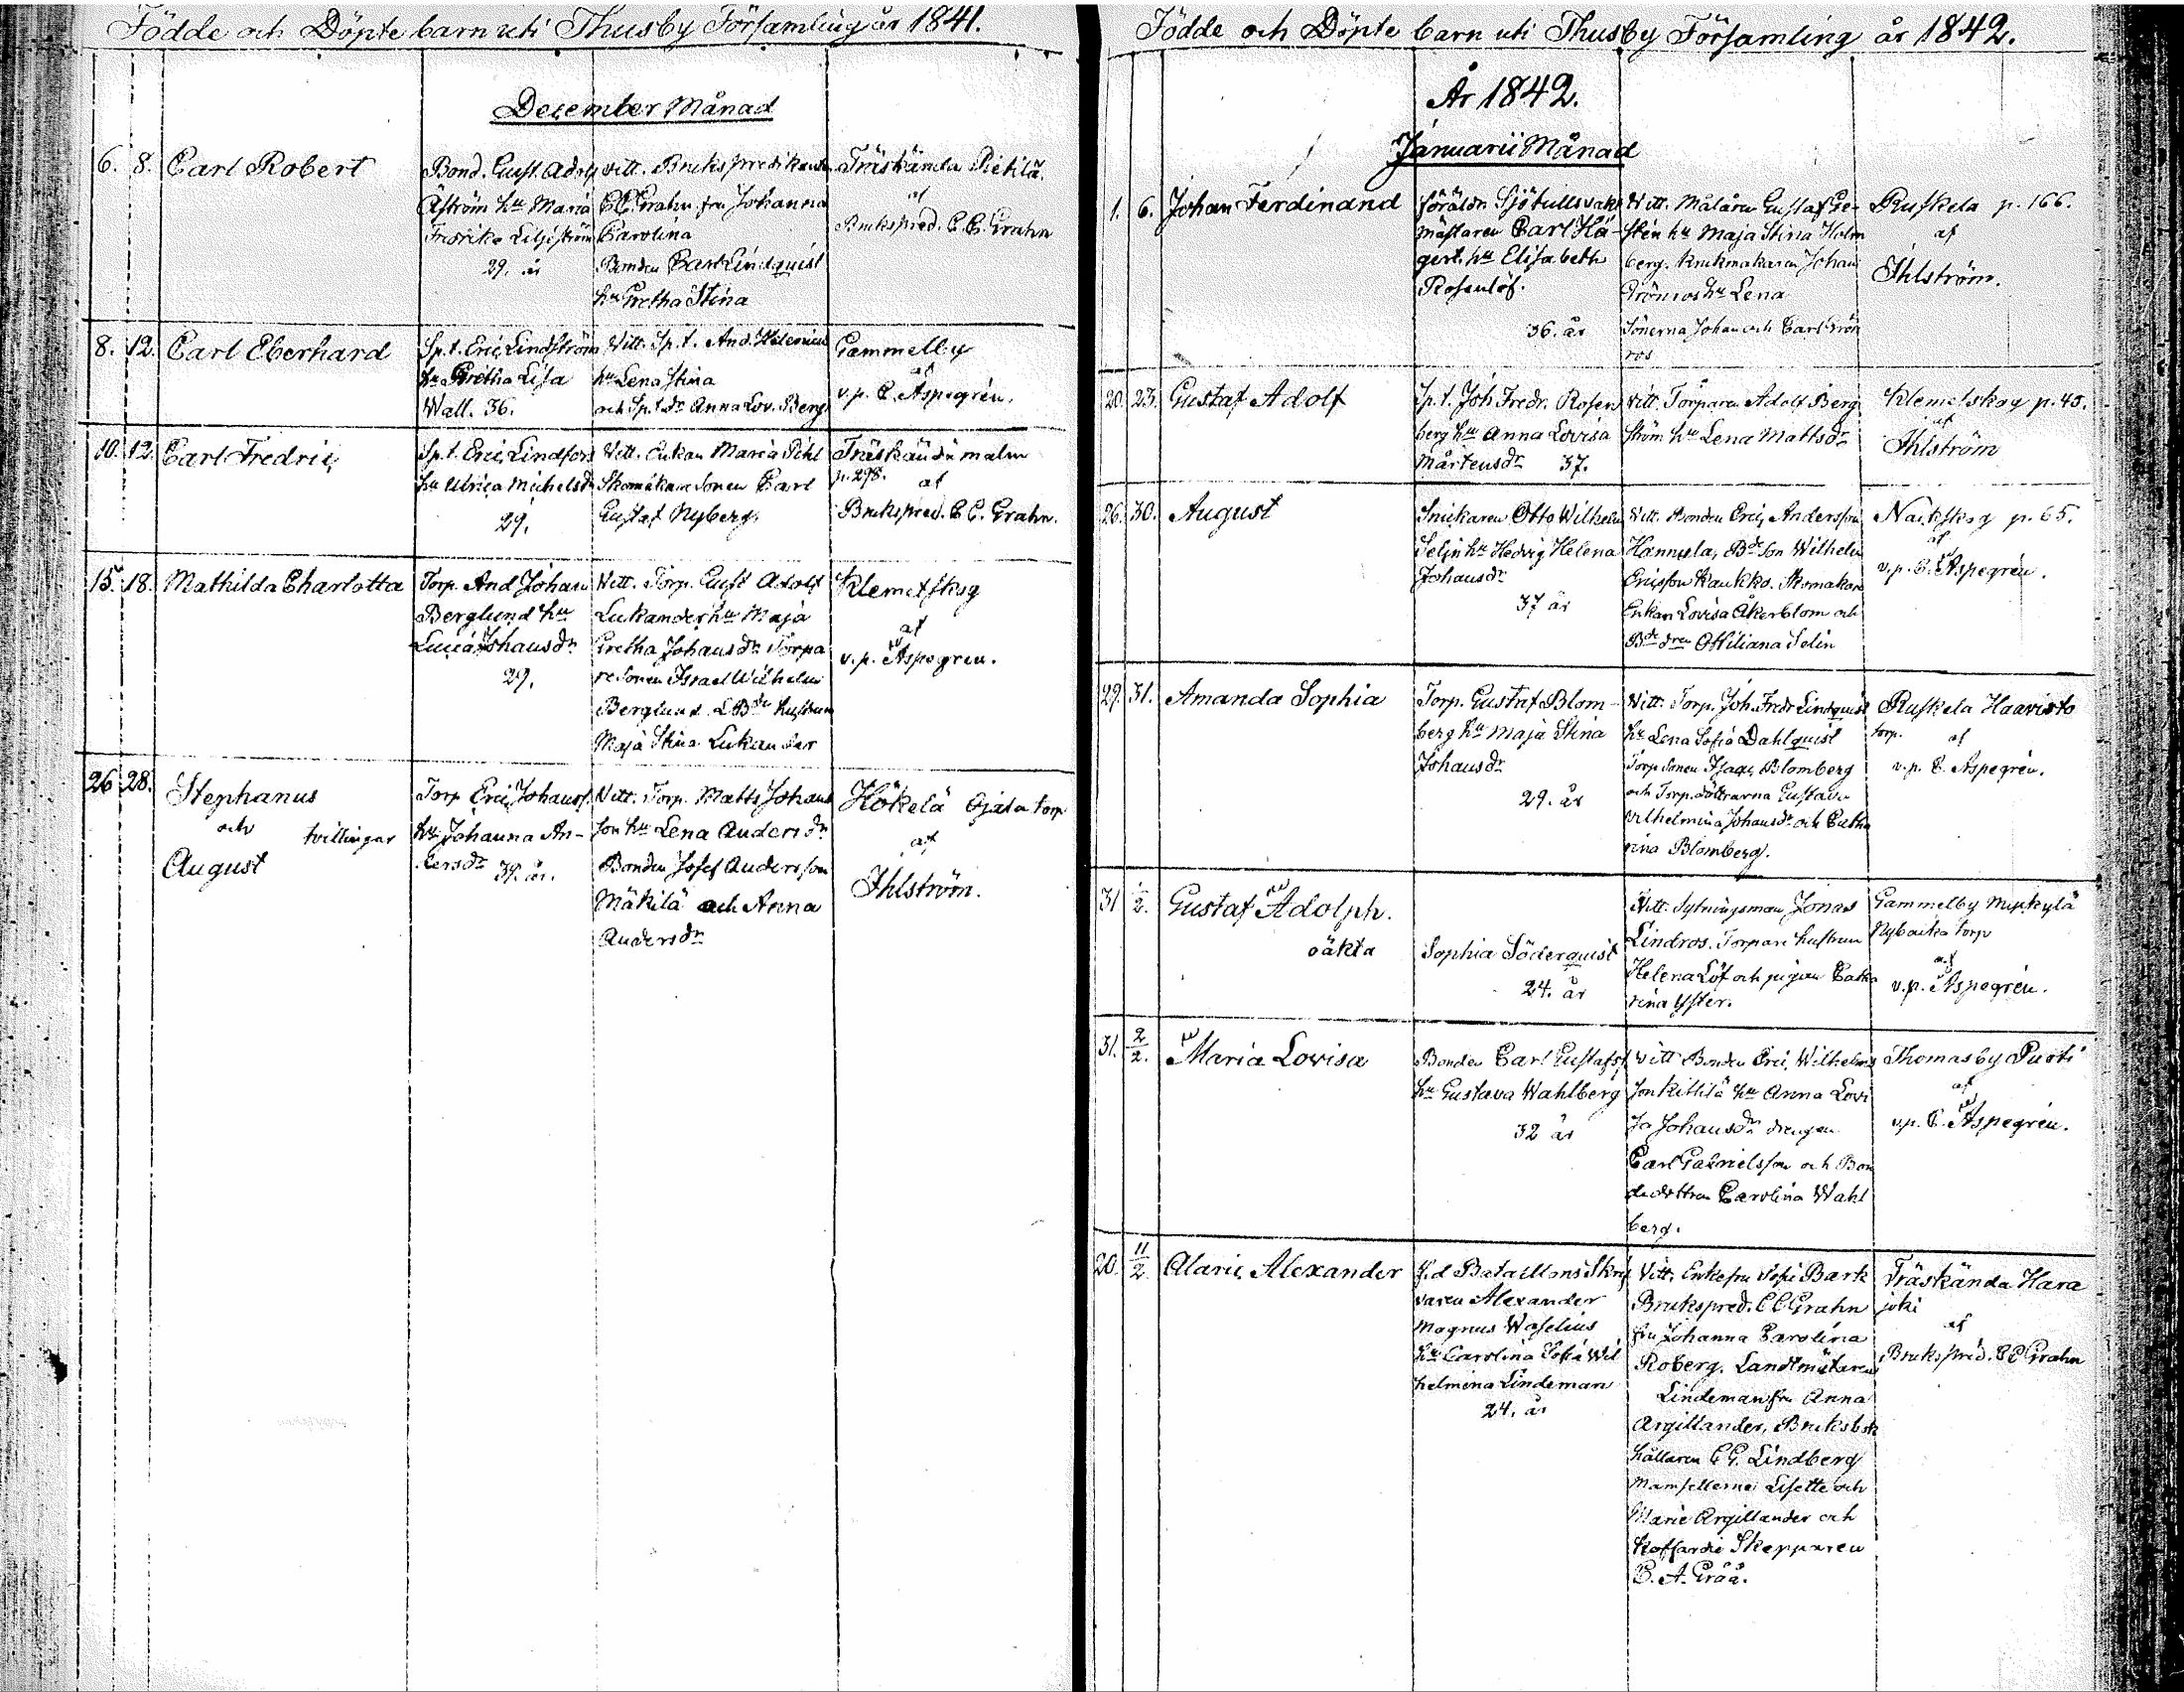 Födde och Döpte barn uti Thusby Församling år 1841.
December Månad
6. 8. Carl Robert
Bond. Gust. Adolf
Åström hu Maria
Fredrika Liljeström
29. år
Vitt. Brukspredikanten
C.C. Grahn, fru Johanna
Carolina
Bonden Carl Lindquist
hu Gretha Stina
Träskända Pietilä.
af
Brukspred. C.C. Grahn
8. 12. Carl Eberhard
Sp.t. Eric Lindström
hu Gretha Lisa
Wall. 36.
Vitt. Sp.t. And.
hu Lena Stina
och Sp.t.dr Anna Lov. Berg
Gammelby
af
v.p. C. Aspegrén.
10. 12. Carl Fredric
Sp.t. Eric Lindfors
hu Ulrica Michelsdr
29.
Vitt. Enkan Maria Pihl
Skomakare Sonen Carl
Gustaf Nyberg.
Träskända malm
p. 298. af
Brukspred. C.C. Grahn.
15. 18. Mathilda Charlotta
Torp. And Johan
Berglund hu
Lucia Johansdr
29.
Vitt. Torp. Gust Adolf
Lukander hu Maja
Gretha Johansdr Torpa
re Sonen Israel Wilhelm
Berglund. & Bde hustrun
Maja Stina Lukander
Klemetskog
af
v.p. Aspegren.
26 28. Stephanus
och tvillingar
August
Torp Eric Johanss.
hu Johanna An-
dersdr 39. år.
Vitt. Torp. Matts Johans
son hu Lena Andersdr
Bonden Josef Andersson
Mäkilä och Anna
Andersdr
Hökelä Ojala torp
af
Ihlström.
Födde och Döpte barn uti Thusby Församling år 1842.
År 1842.
Januarii Månad
1. 6. Johan Ferdinand
föräldr Sjötullsvakt
mästaren Carl Hä-
gert. hu Elisabeth
Rosenlöf.
36. år
Vitt. Målaren Gustaf Ge-
stén hu Maja Stina Holm
berg. Krukmakaren Johan
Grönros hu Lena
Sönerna Johan och Carl Grön
ros
Ruskela p. 166.
af
Ihlström.
20. 23. Gustaf Adolf
Sp.t. Joh Fredr. Rosen
berg hu Anna Lovisa
Mårtensdr 37.
Vitt. Torparen Adolf Berg
ström hu Lena Mattsdr
Klemetskog p. 45.
af
Ihlström
26. 30. August
Snickaren Otto Wilhelm
Selin hu Hedvig Helena
Johansdr
37 år
Vitt. Bonden Eric Andersson
Hannula, Bde Son Wilhelm
Ericsson Kaukko. Skomakare
Enkan Lovisa Åkerblom och
Bde dren Ottiliana Selin
Nackskog p. 65.
af
v.p. C. Aspegrén.
29. 31. Amanda Sophia
Torp. Gustaf Blom-
berg hu Maja Stina
Johansdr
29. år
Vitt. Torp. Joh. Fredr Lindquist
hu Lena Sofia Dahlquist
Torp Sonen Isaac Blomberg
och Torp. döttrarna Gustava
Vilhelmina Johansdr och Catha
rina Blomberg.
Ruskela Haavisto
torp. af
v.p. C. Aspegrén.
31 1/2. Gustaf Adolph.
oäkta
Sophia Söderquist
24. år
Vitt. Sytningsman Jonas
Lindros. Torpare hustrun
Helena Löf och pigan Catha
rina Yster.
Gammelby
Nybacka torp
af
v.p. Aspegrén.
31. 2/2. Maria Lovisa
Bonden Carl Gustafss.
hu Gustava Wahlberg
32 år
Vitt Bonden Eric Wilhelms
son Kittilä hu Anna Lovi
sa Johansdr drengen
Carl Gabrielsson och Bon
dedottren Carolina Wahl
berg.
Thomasby Puoti
af
v.p. C. Aspegrén.
20. 11/2. Alaric Alexander
f.d Bataillons Skrif
varen Alexander
Magnus Waselius
hu Carolina Sofia Wil
helmina Lindeman
24. år
Vitt. Enkefru Sofie Bark
Brukspred. C C Grahn
fru Johanna Carolina
Roberg. Landtmätaren
Lindeman fru Anna
Argillander, Bruksbok
hållaren C G. Lindberg
Mamsellerna Lisette och
Marie Argillander och
Koffardie Skepparen
C. A. Gråå.
Träskända Hara
joki
af
Brukspred. C C Grahn